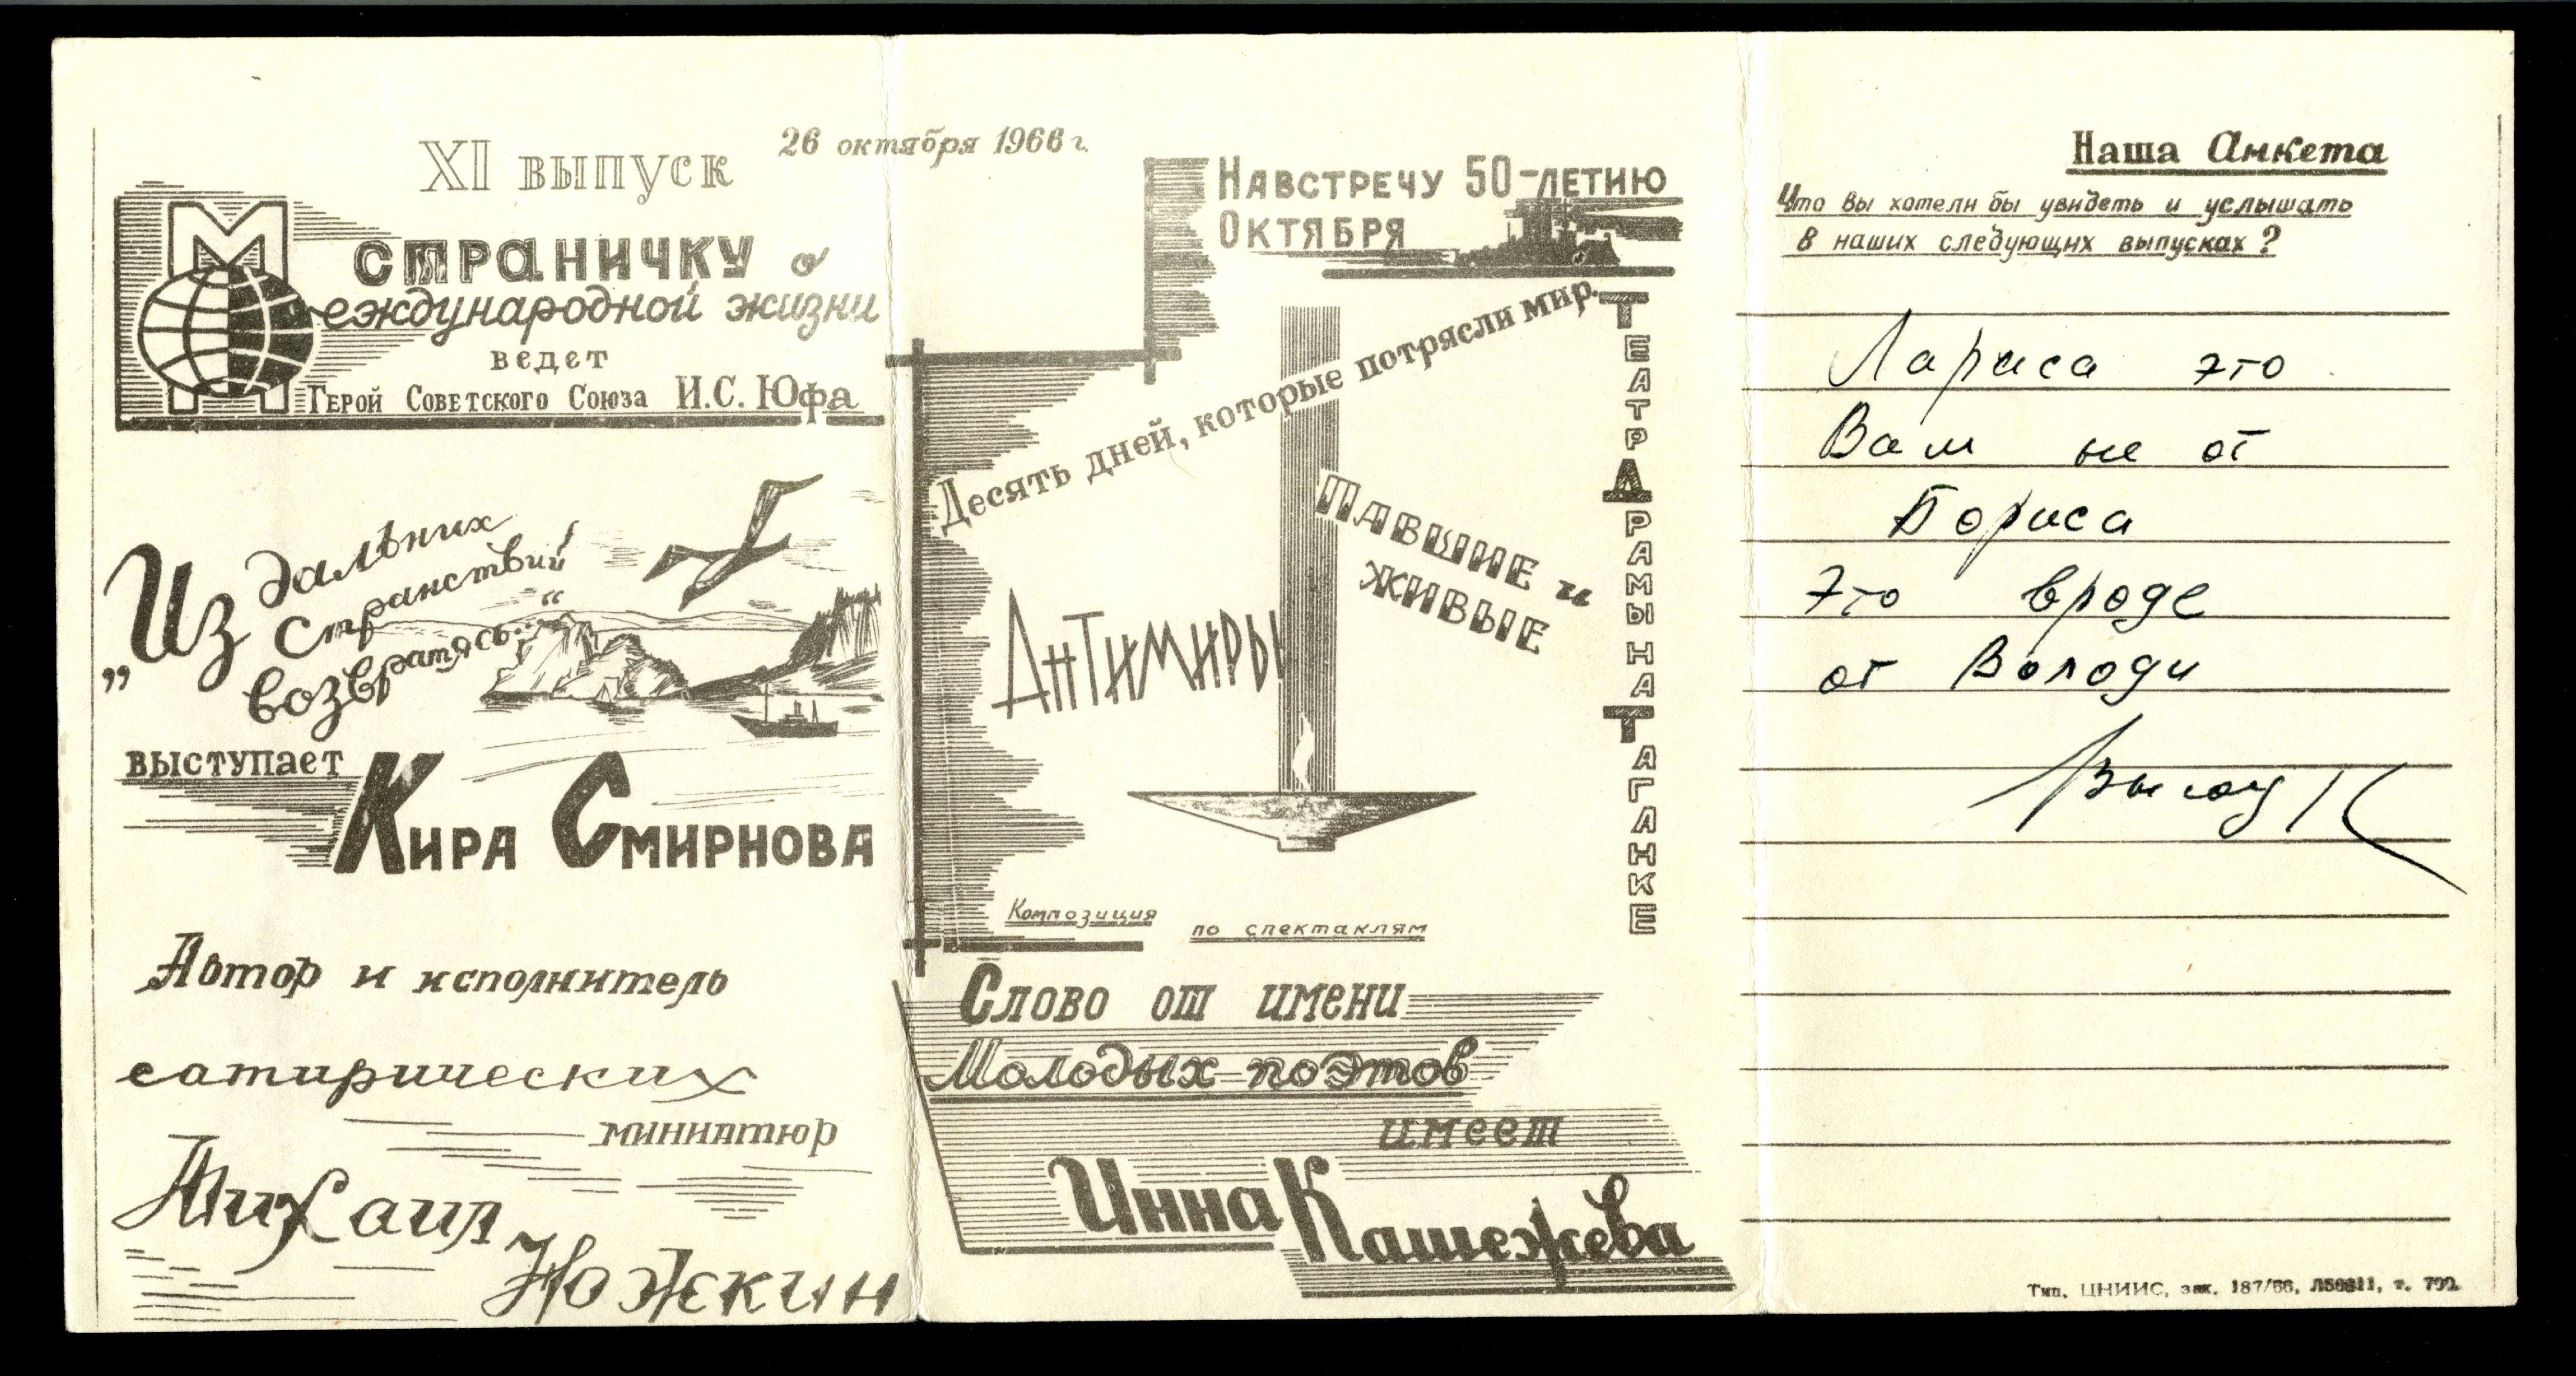 XI выпуск
26 октября 1966 г.
страничку о
Международной жизни
ведет
Герой Советского Союза И.С. Юфа
„Из дальних
странствий
возвратясь..."
выступает
Кира Смирнова
Автор и исполнитель
сатирических
миниатюр
Михаил
Ножкин
Навстречу 50-летию
Октября
Десять дней, которые потрясли мир.
Павшие и
живые
Антимиры
Театр Драмы на Таганке
Композиция по спектаклям
Слово от имени
Молодых поэтов
имеет
Инна Кашежева
Наша Анкета
Что вы хотели бы увидеть и услышать
в наших следующих выпусках?
Лариса это
Вам не от
Бориса
Это вроде
от Володи
Тип. ЦНИИС, зак. 187/66, т. 700.